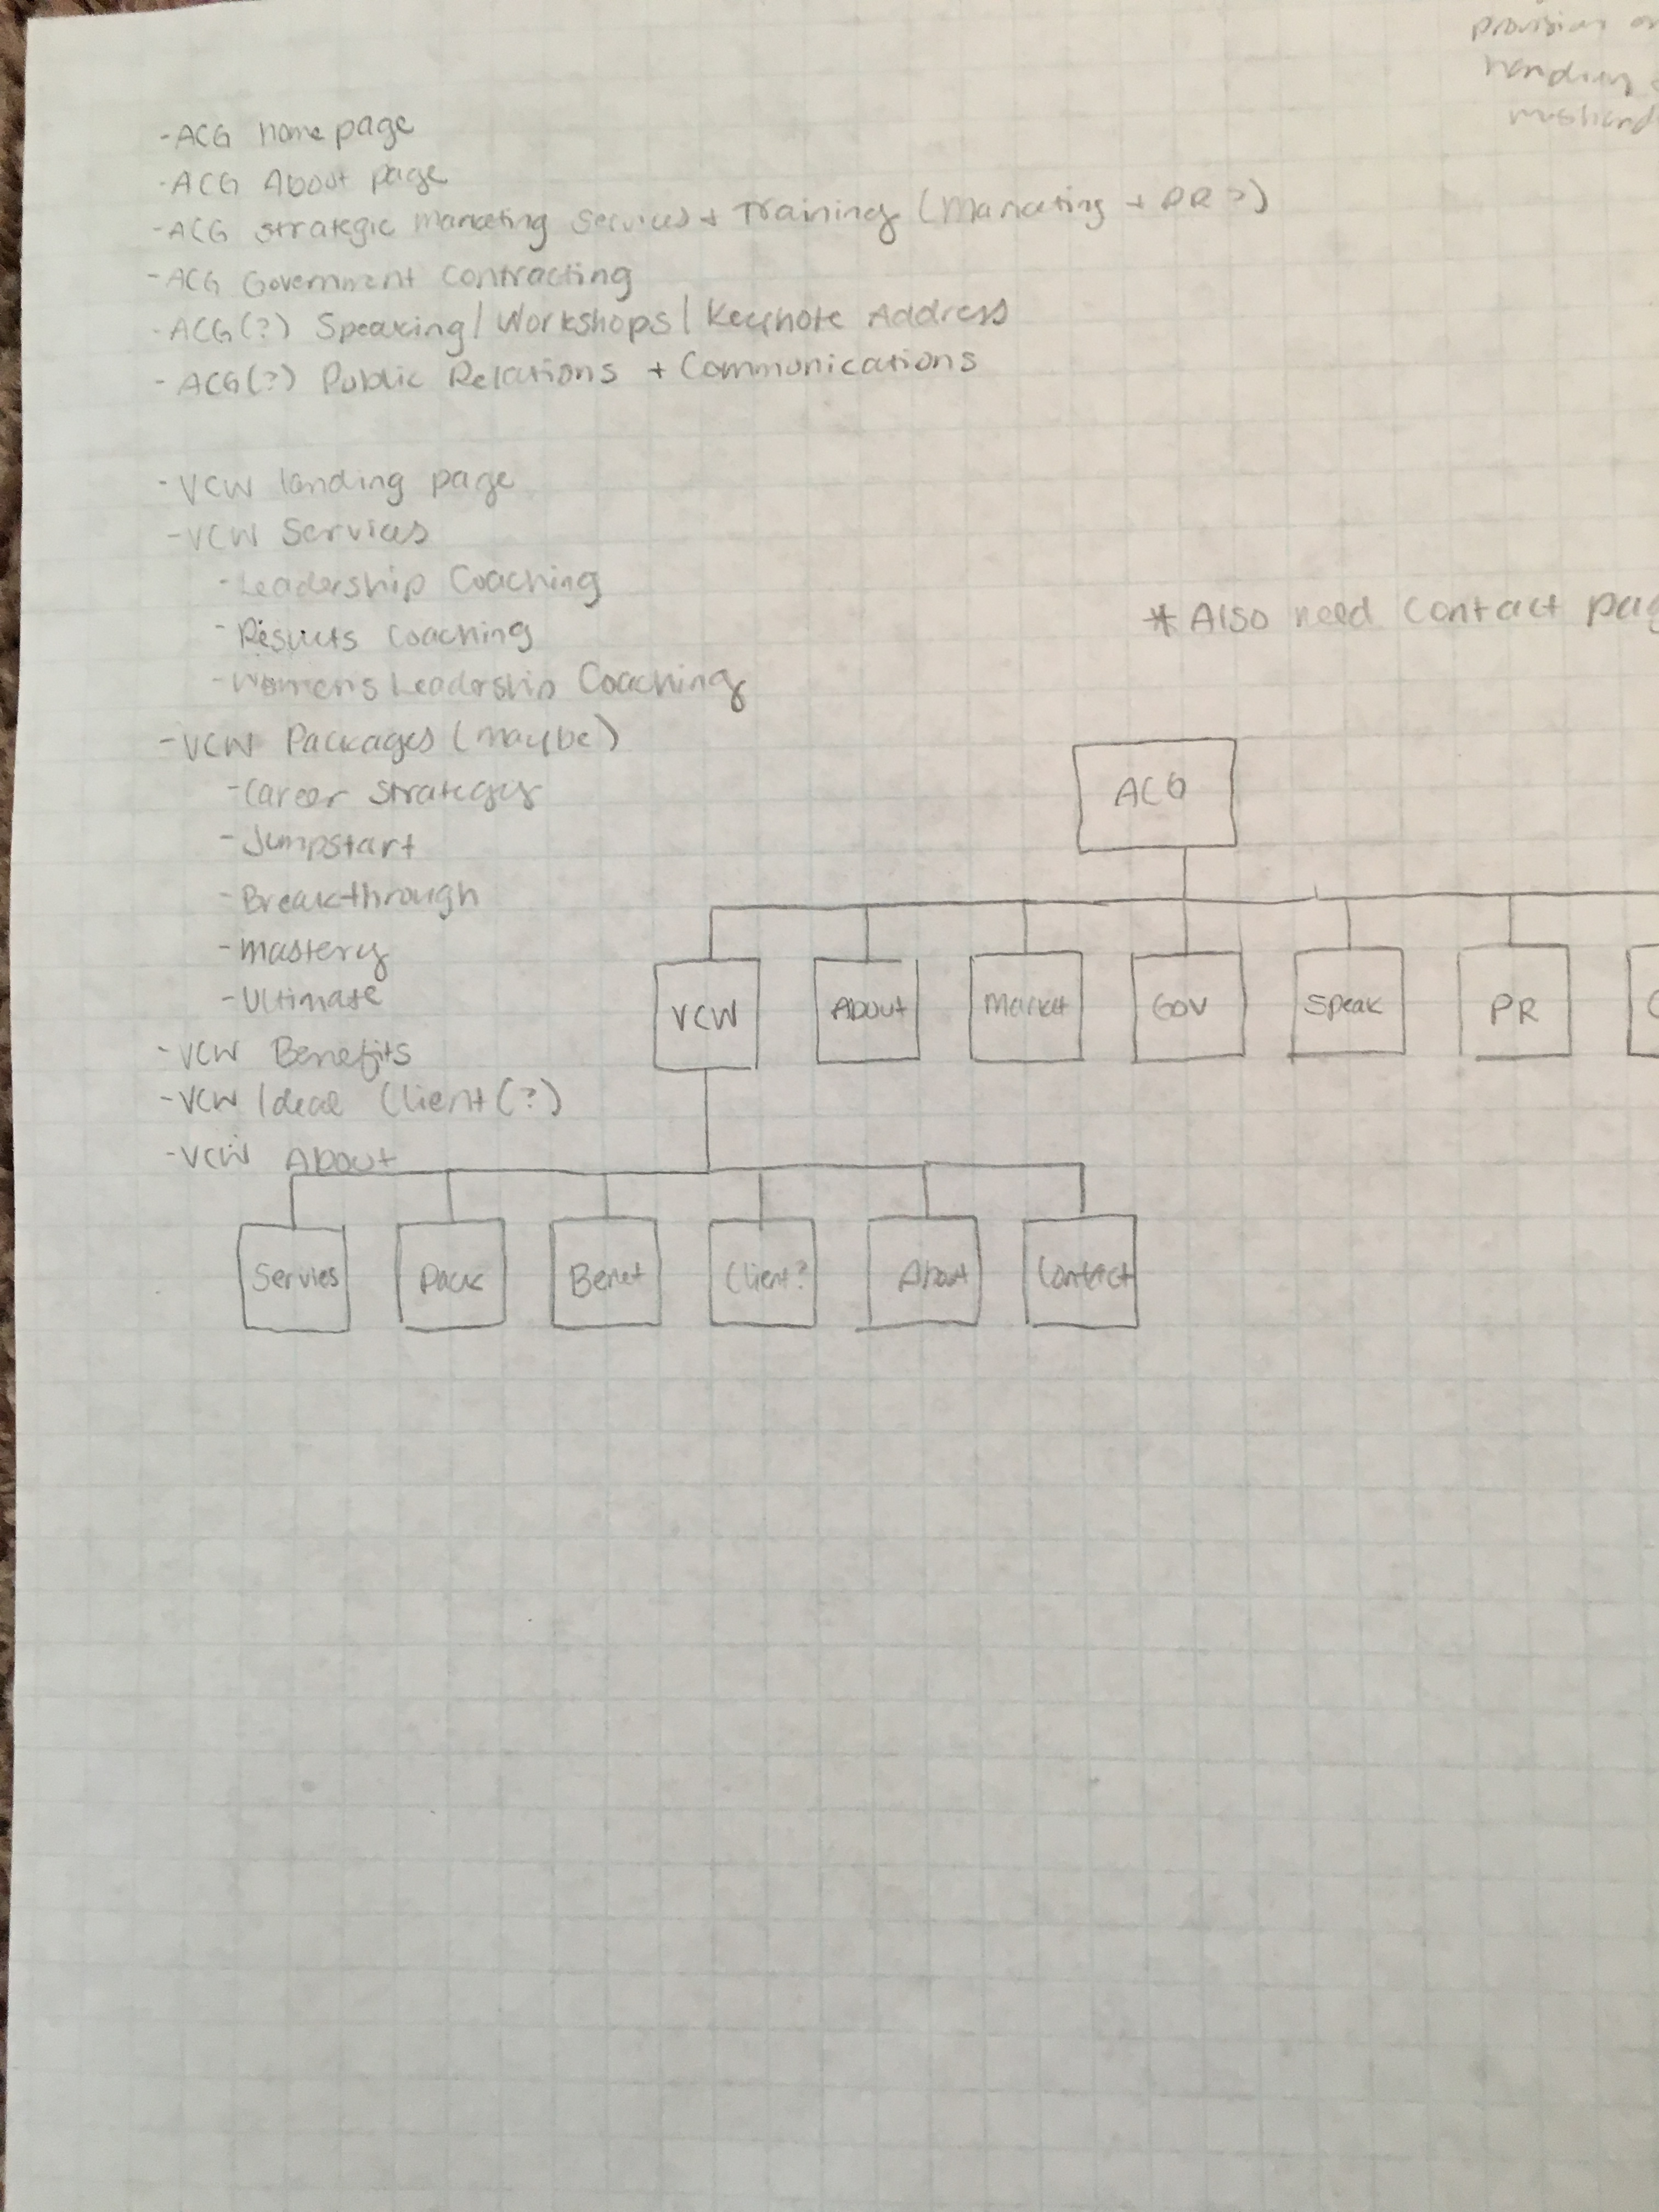 provision
handling
- ACG home page
- ACG About page
- ACG Strategic Marketing Services + Training (Marketing + PR?)
- ACG Government Contracting
- ACG(?) Speaking/Workshops/Keynote Address
- ACG(?) Public Relations + Communications
- VCW landing page
- VCW Services
- Leadership Coaching
- Results Coaching
- Womens Leadership Coaching
- VCW Packages (maybe)
- Career Strategy
- Jumpstart
- Breakthrough
- Mastery
- Ultimate
- VCW Benefits
- VCW Ideal Client(?)
- VCW About
* Also need Contact pag
ACG
VCW About Market GOV Speak PR C
Servies Pack Benet Client? About Contact